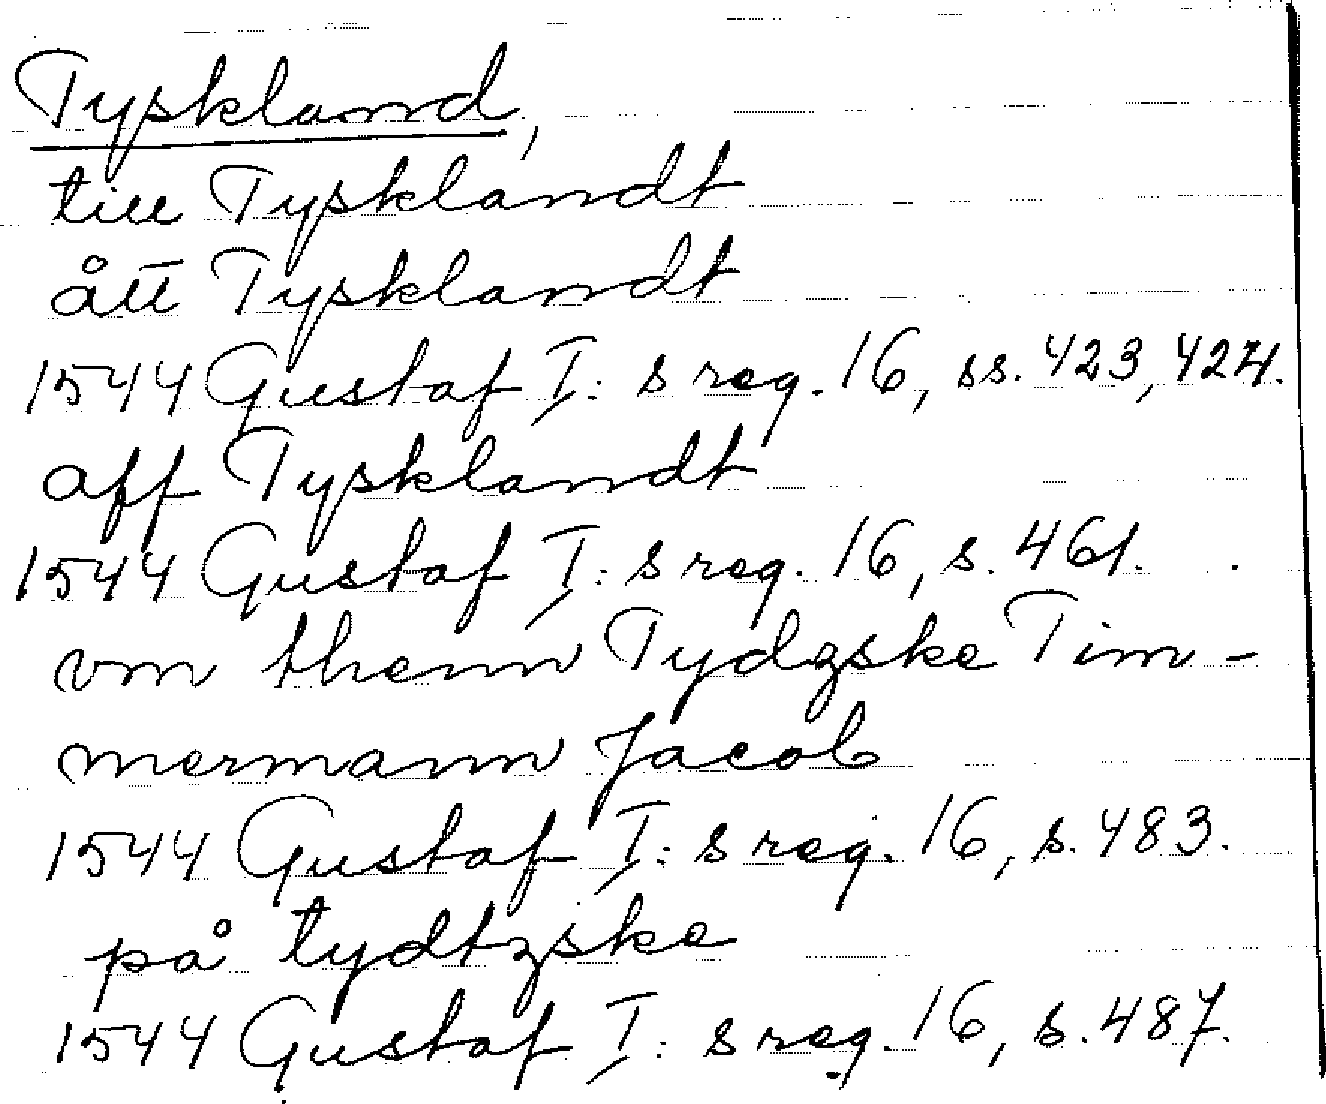 Tyskland,
till Tysklandt
ått Tysklandt
1544 Gustaf I:s reg. 16, ss. 423, 424.
aff Tysklandt
1544 Gustaf I:s reg. 16, s. 461.
vm thenn Tydzske Tim-
mermann Jacob
1544 Gustaf I:s reg. 16, s. 483.
på tydtzske
1544 Gustaf I:s reg. 16, s. 487.